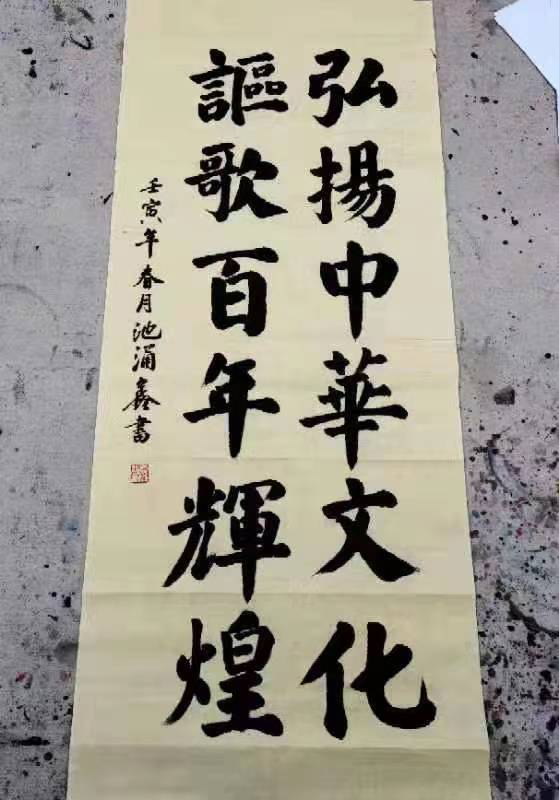 弘揚中華文化
謳歌百年輝煌
壬寅年春月池涌鑫書